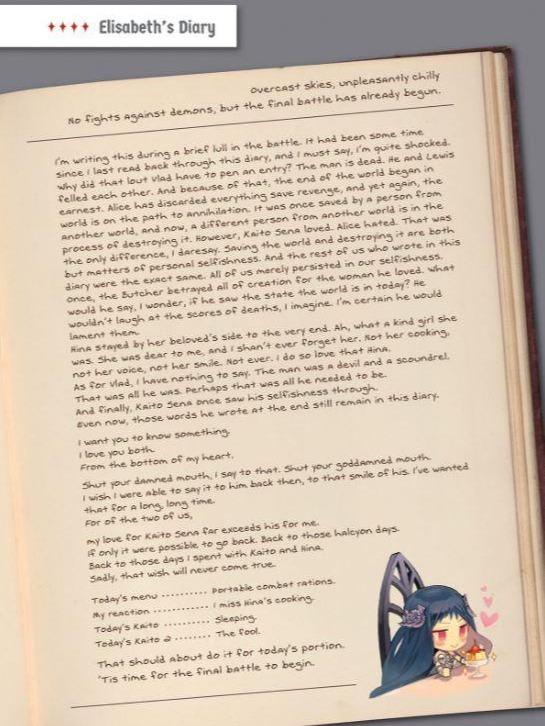 Elisabeth's Diary
Overcast skies, unpleasantly chilly
No fights against demons, but the final battle has already begun.
I'm writing this during a brief lull in the battle. It had been some time
since I last read back through this diary, and I must say, I'm quite shocked.
Why did that lout Vlad have to pen an entry? The man is dead. He and Lewis
felled each other. And because of that, the end of the world began in
earnest. Alice has discarded everything save revenge, and yet again, the
world is on the path to annihilation. It was once saved by a person from
another world, and now, a different person from another world is in the
process of destroying it. However, Kaito Sena loved. Alice hated. That was
the only difference, I daresay. Saving the world and destroying it are both
but matters of personal selfishness. And the rest of us who wrote in this
diary were the exact same. All of us merely persisted in our selfishness.
Once, the Butcher betrayed all of creation for the woman he loved. What
would he say, I wonder, if he saw the state the world is in today? He
wouldn't laugh at the scores of deaths, I imagine. I'm certain he would
lament them.
Hina stayed by her beloved's side to the very end. Ah, what a kind girl she
was. She was dear to me, and I shan't ever forget her. Not her cooking,
not her voice, not her smile. Not ever. I do so love that Hina.
As for Vlad, I have nothing to say. The man was a devil and a scoundrel.
That was all he was. Perhaps that was all he needed to be.
And finally, Kaito Sena once saw his selfishness through.
Even now, those words he wrote at the end still remain in this diary.
I want you to know something.
I love you both.
From the bottom of my heart.
Shut your damned mouth, I say to that. Shut your goddamned mouth.
I wish I were able to say it to him back then, to that smile of his. I've wanted
that for a long, long time.
For of the two of us,
my love for Kaito Sena far exceeds his for me.
If only it were possible to go back. Back to those halcyon days.
Back to those days I spent with Kaito and Hina.
Sadly, that wish will never come true.
Today's menu .......... Portable combat rations.
My reaction .............. I miss Hina's cooking.
Today's Kaito ........... Sleeping.
Today's Kaito 2 ........ The fool.
That should about do it for today's portion.
'Tis time for the final battle to begin.